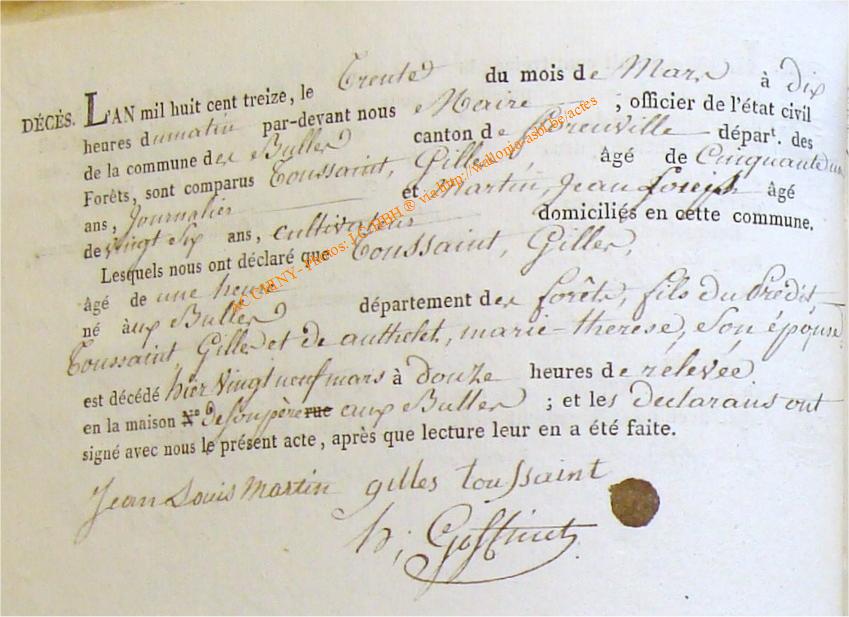 DÉCÈS. L'AN mil huit cent treize, le Trente du mois de Mars à dix
heures du matin par-devant nous Maire ; officier de l'état civil
de la commune des Bulles canton de florenville départ. des
Forêts, sont comparus Toussaint, Gilles, âgé de Cinquante un
ans, Journalier et Martin, Jean Joseph âgé
de vingt six ans, cultivateurs domiciliés en cette commune.
Lesquels nous ont déclaré que Toussaint, Gilles,
âgé de une heure
né aux Bulles département des forêts, fils du Prédit
Toussaint, Gilles et de authelet, marie-therese, Son épouse
est décédé hier vingt neuf mars à douze heures de relevée
en la maison No de son père rue aux Bulles ; et les déclarans ont
signé avec nous le présent acte, après que lecture leur en a été faite.
Jean Louis Martin gilles toussaint
h, Goffinet
ACCIGNY - Photos: J.GOEBH ® via http://wallonia-asbl.be/actes